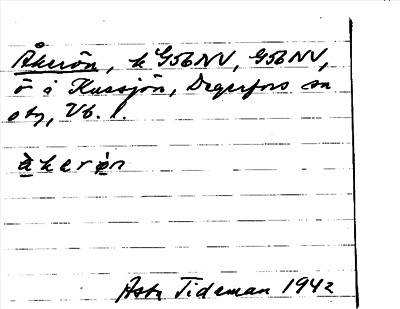 Åkerön, k G56NV, 956NV,
ö i Kussjön, Degerfors sn
oby, Vb. l.
åkerøn
Astr Tideman 1942